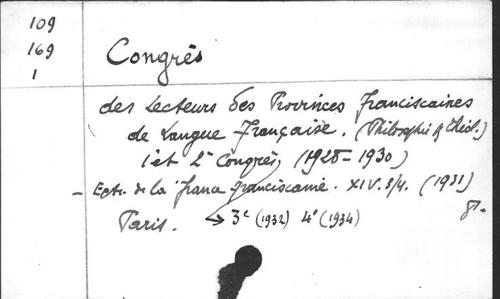 109
169
1
Congrès
des Lecteurs des Provinces franciscaines
de Langue Française. (Philosophie & théol.)
1 et 2e Congrès, (1928-1930)
- Extr. de la "France franciscaine. XIV. 3/4. (1931)
Paris. → 3e (1932) 4e (1934) 8°.